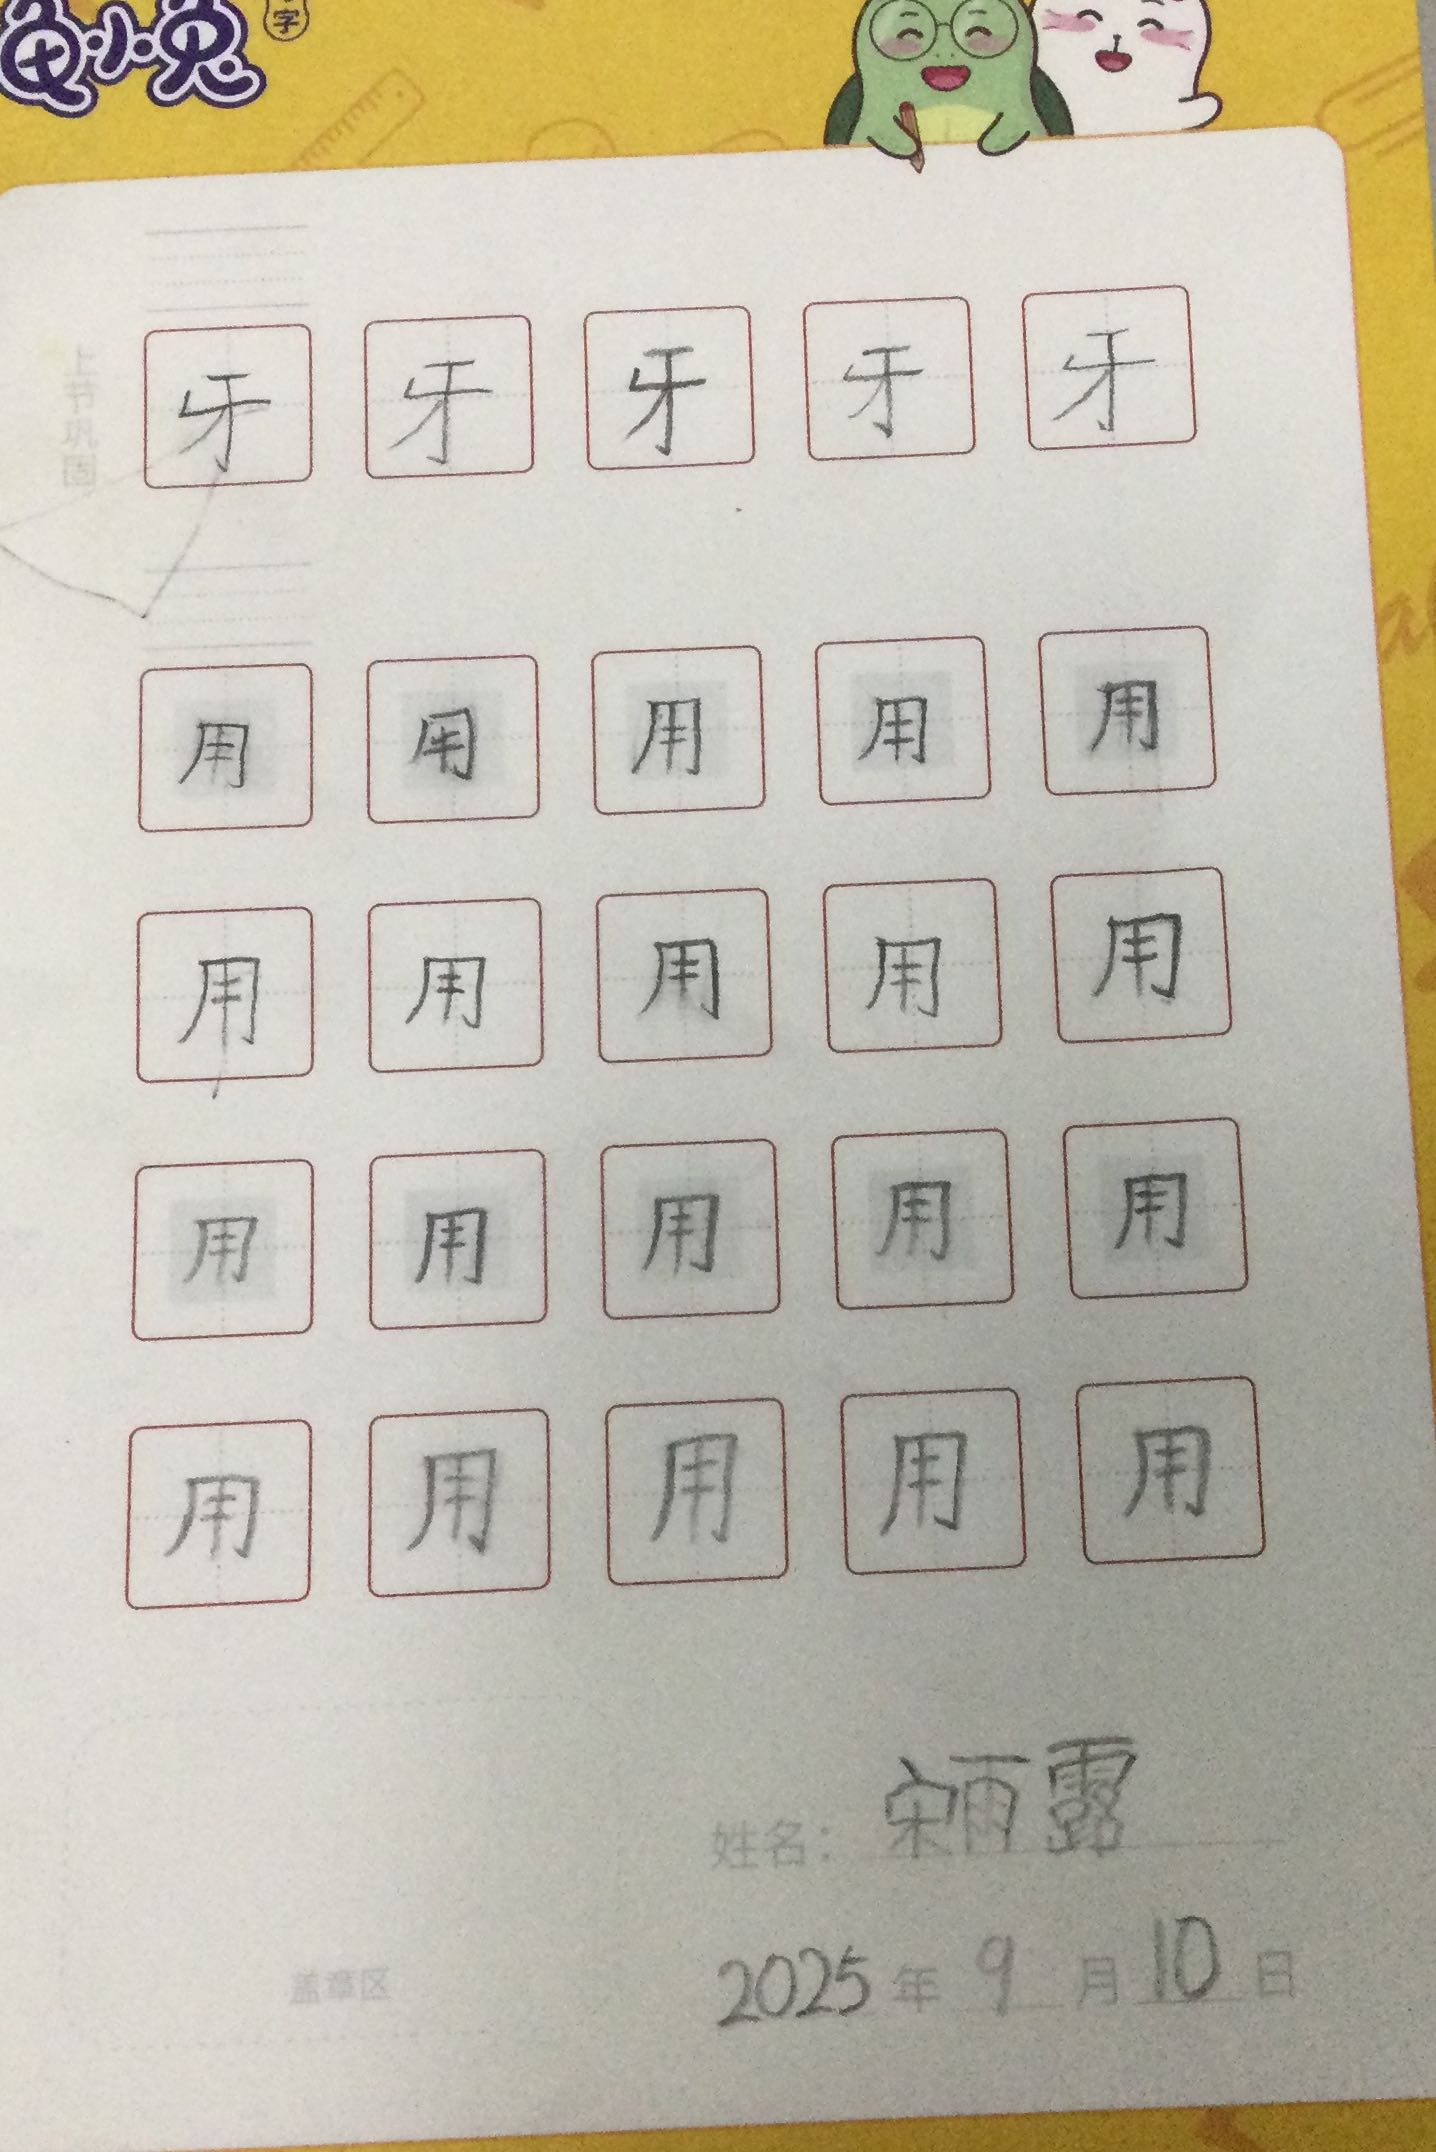 龟小兔
字
上节巩固
牙 牙 牙 牙 牙
用 用 用 用 用
用 用 用 用 用
用 用 用 用 用
用 用 用 用 用
姓名：宋雨露
盖章区
2025年9月10日